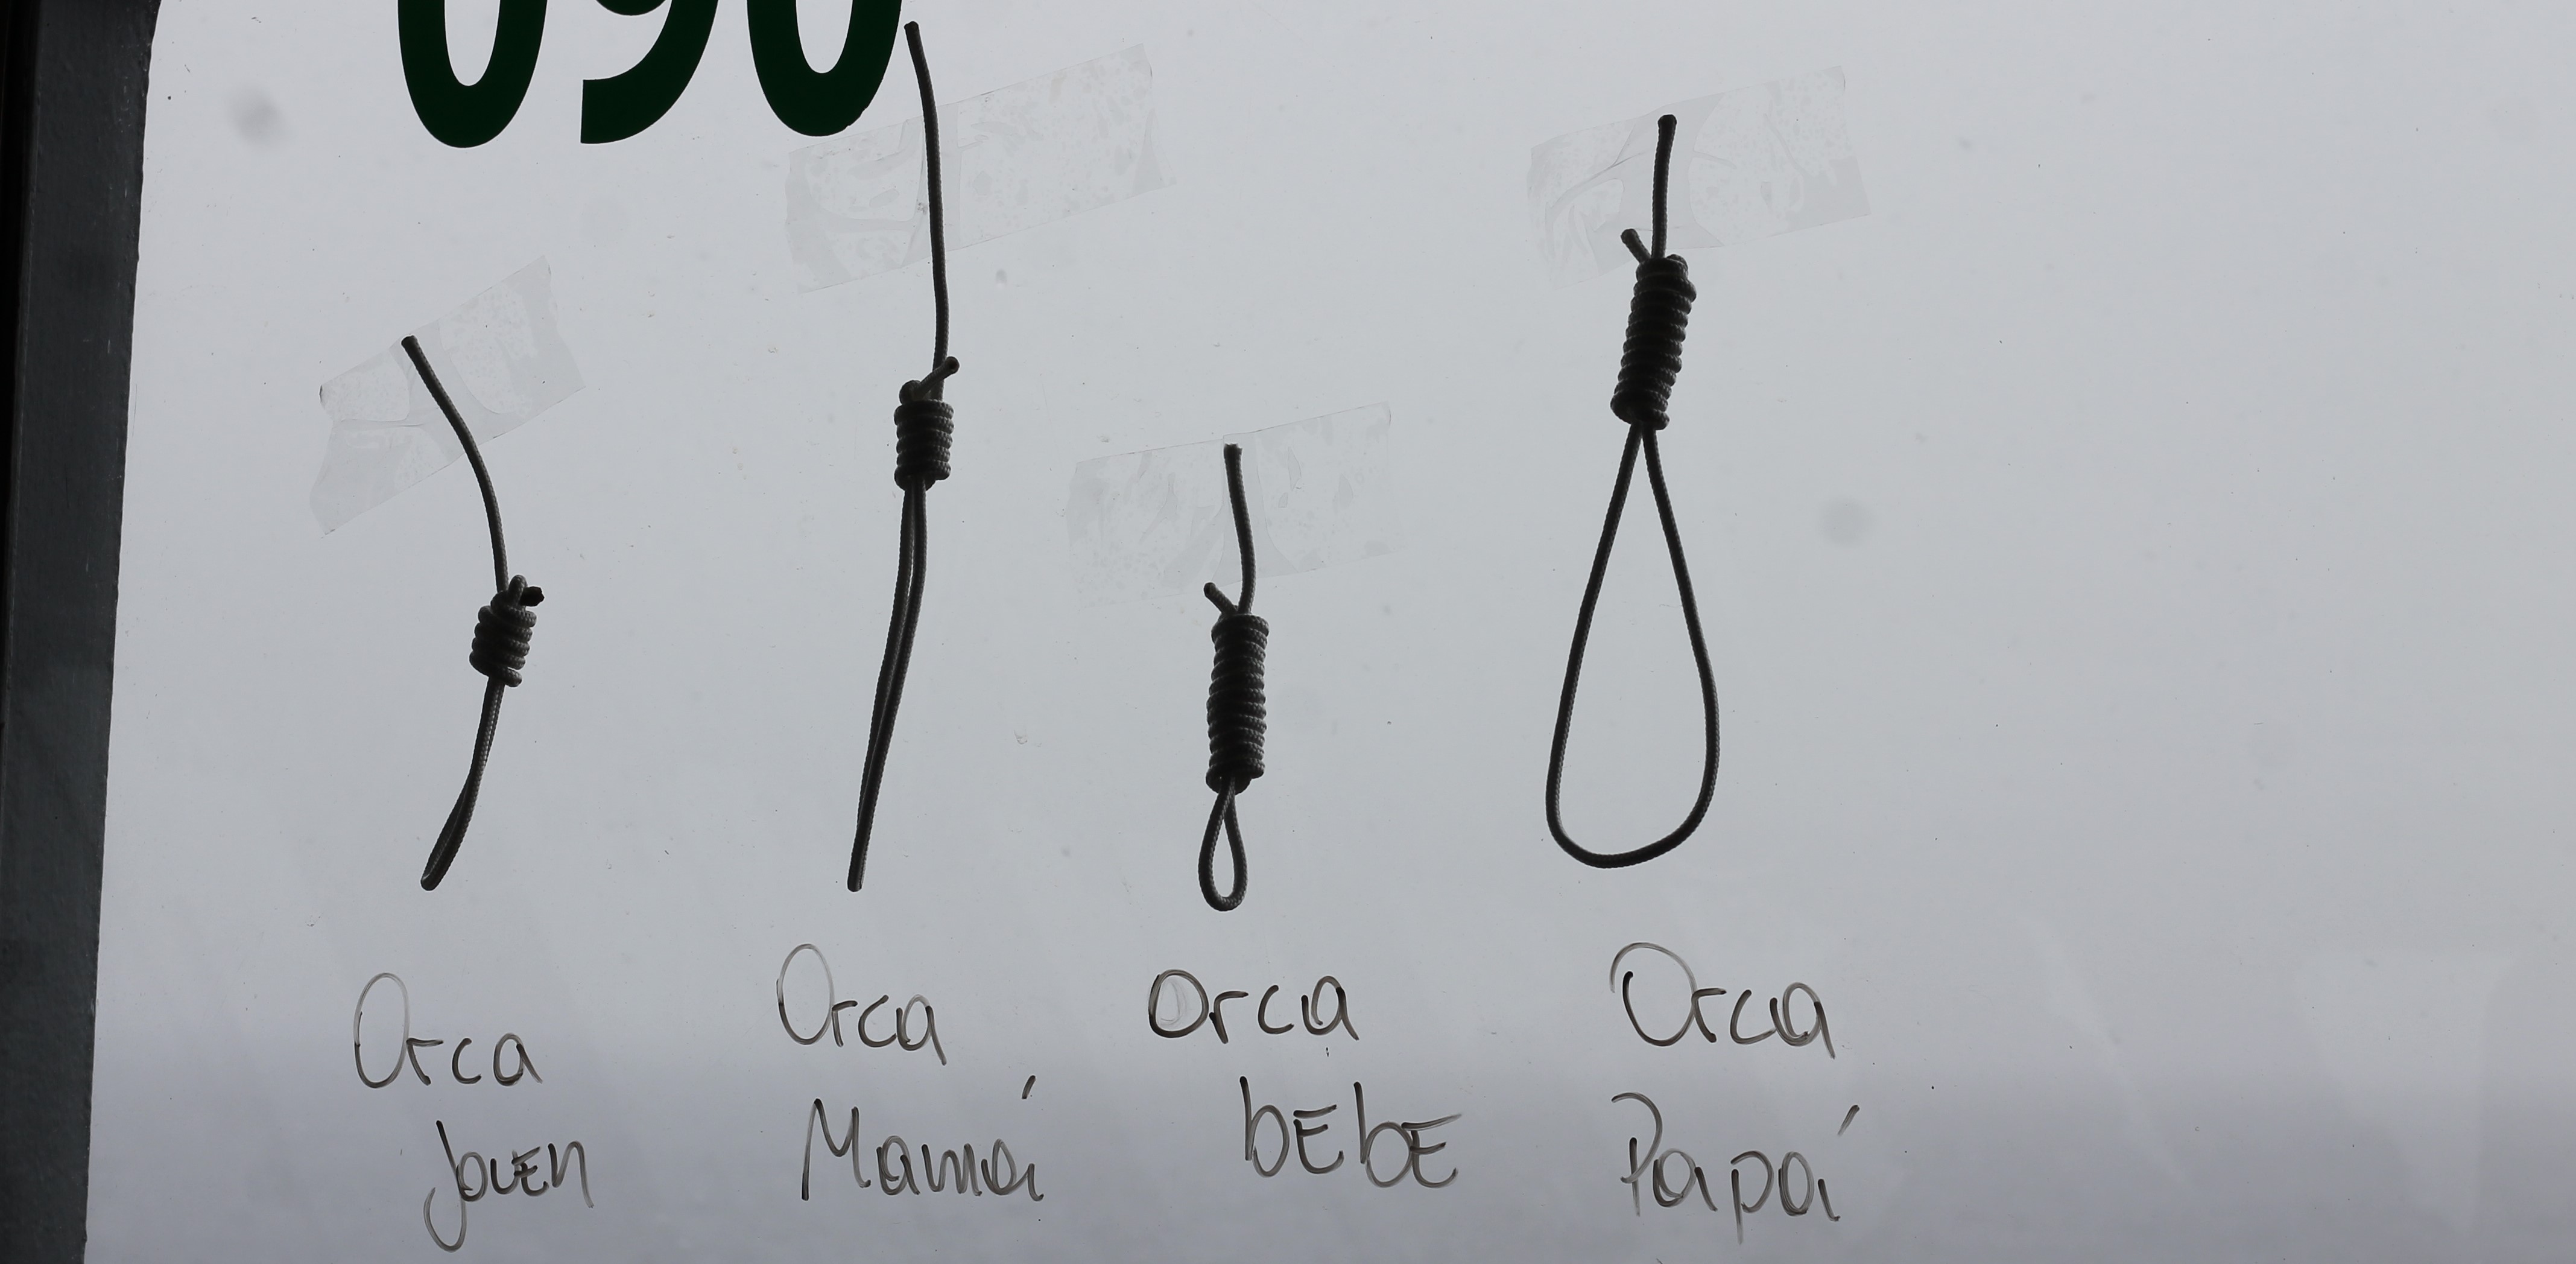 090
Orca
joven
Orca
Mamá
Orca
bEbE
Orca
Papá